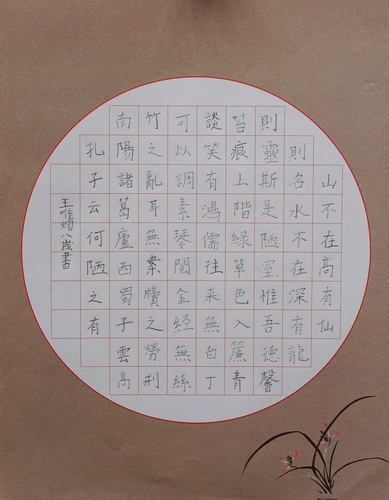 山不在高有仙
則名水不在深有龍
則靈斯是陋室惟吾德馨
苔痕上階綠草色入簾青
談笑有鴻儒往来無白丁
可以調素琴閱金经無絲
竹之亂耳無案牘之勞刑
南陽諸葛廬西蜀子雲高
孔子云何陋之有
王唯八歲書